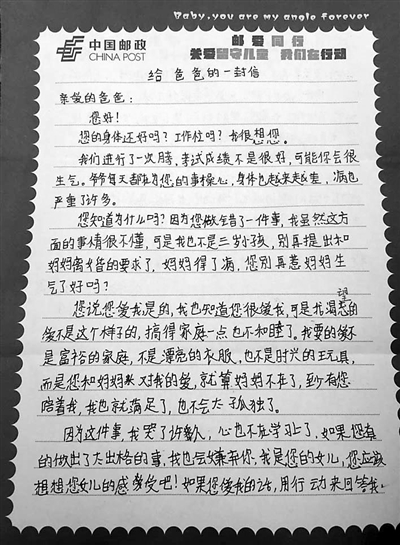 Baby, you are my angle forever
中国邮政
CHINA POST
邮爱同行
关爱留守儿童 我们在行动
给爸爸的一封信
亲爱的爸爸:
您好!
您的身体还好吗?工作忙吗?我很想您。
我们进行了一次月考,考试成绩不是很好,可能你会很
生气。爷爷每天都在为您的事操心,身体也越来越差,病也
严重了许多。
您知道为什么吗?因为您做错了一件事,我虽然这方
面的事情很不懂,可是我也不是三岁小孩,别再提出和
妈妈离婚的要求了,妈妈得了病,您别再惹妈妈生
气了好吗?
您说您爱我是的,我也知道您很爱我,可是我渴望的
爱不是这个样子的,搞得家庭一点也不和睦了。我要的爱不
是富裕的家庭,不是漂亮的衣服,也不是时兴的玩具,
而是您和妈妈对我的爱,就算妈妈不在了,至少有您
陪着我,我也就满足了,也不会太孤独了。
因为这件事,我哭了许多次,心也不在学习上了,如果您真
的做出了太出格的事,我也会嫌弃你,我是您的女儿,您应该
想想您女儿的感受吧!如果您爱我的话,用行动来回答我。